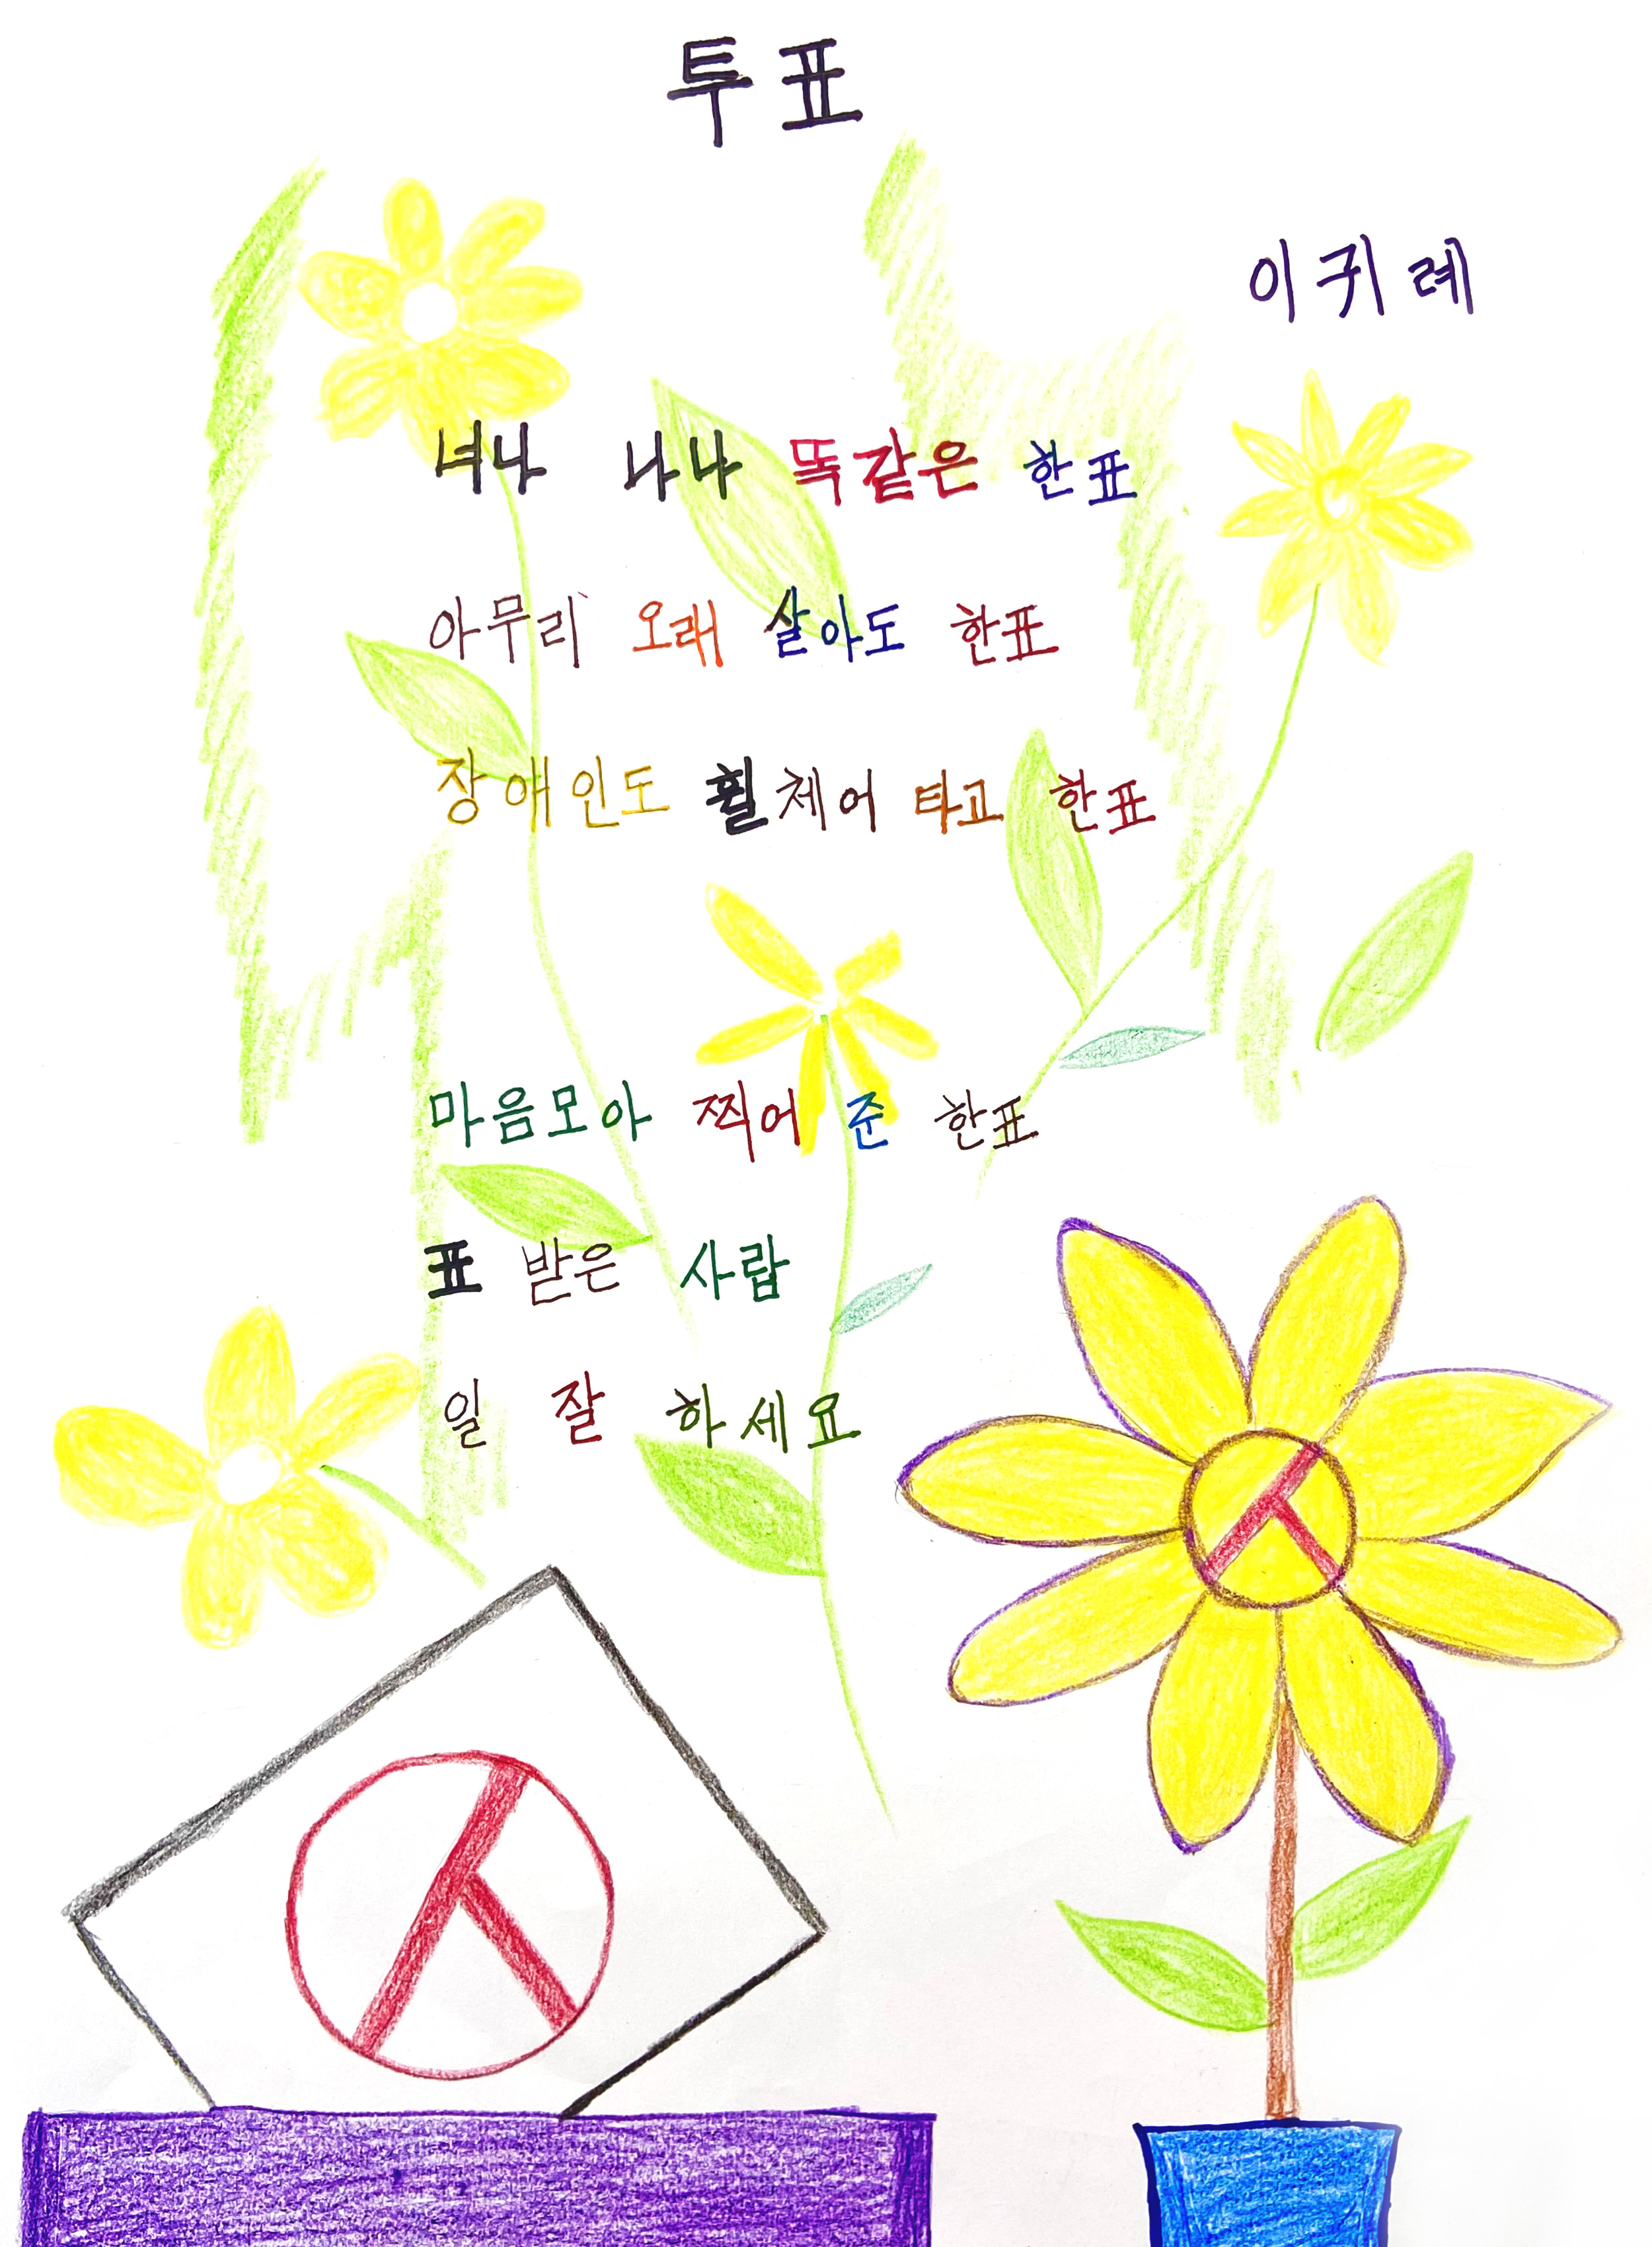 투표
이귀례
녀나 나나 똑같은 한표
아무리 오래 살아도 한표
장애인도 휠체어 타고 한표
마음모아 찍어 준 한표
표 받은 사람
일 잘 하세요